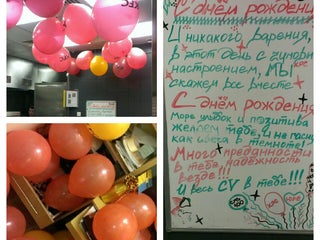 С днём рождения
И никакого варения,
в этот день с
настроением, МЫ
скажем все вместе
С днём рождения
Море улыбок и позитива
желаем тебе, И не
как в темноте!
Много преданности
в тебя, надёжность
везде!!!
И весь CV в тебе!!!